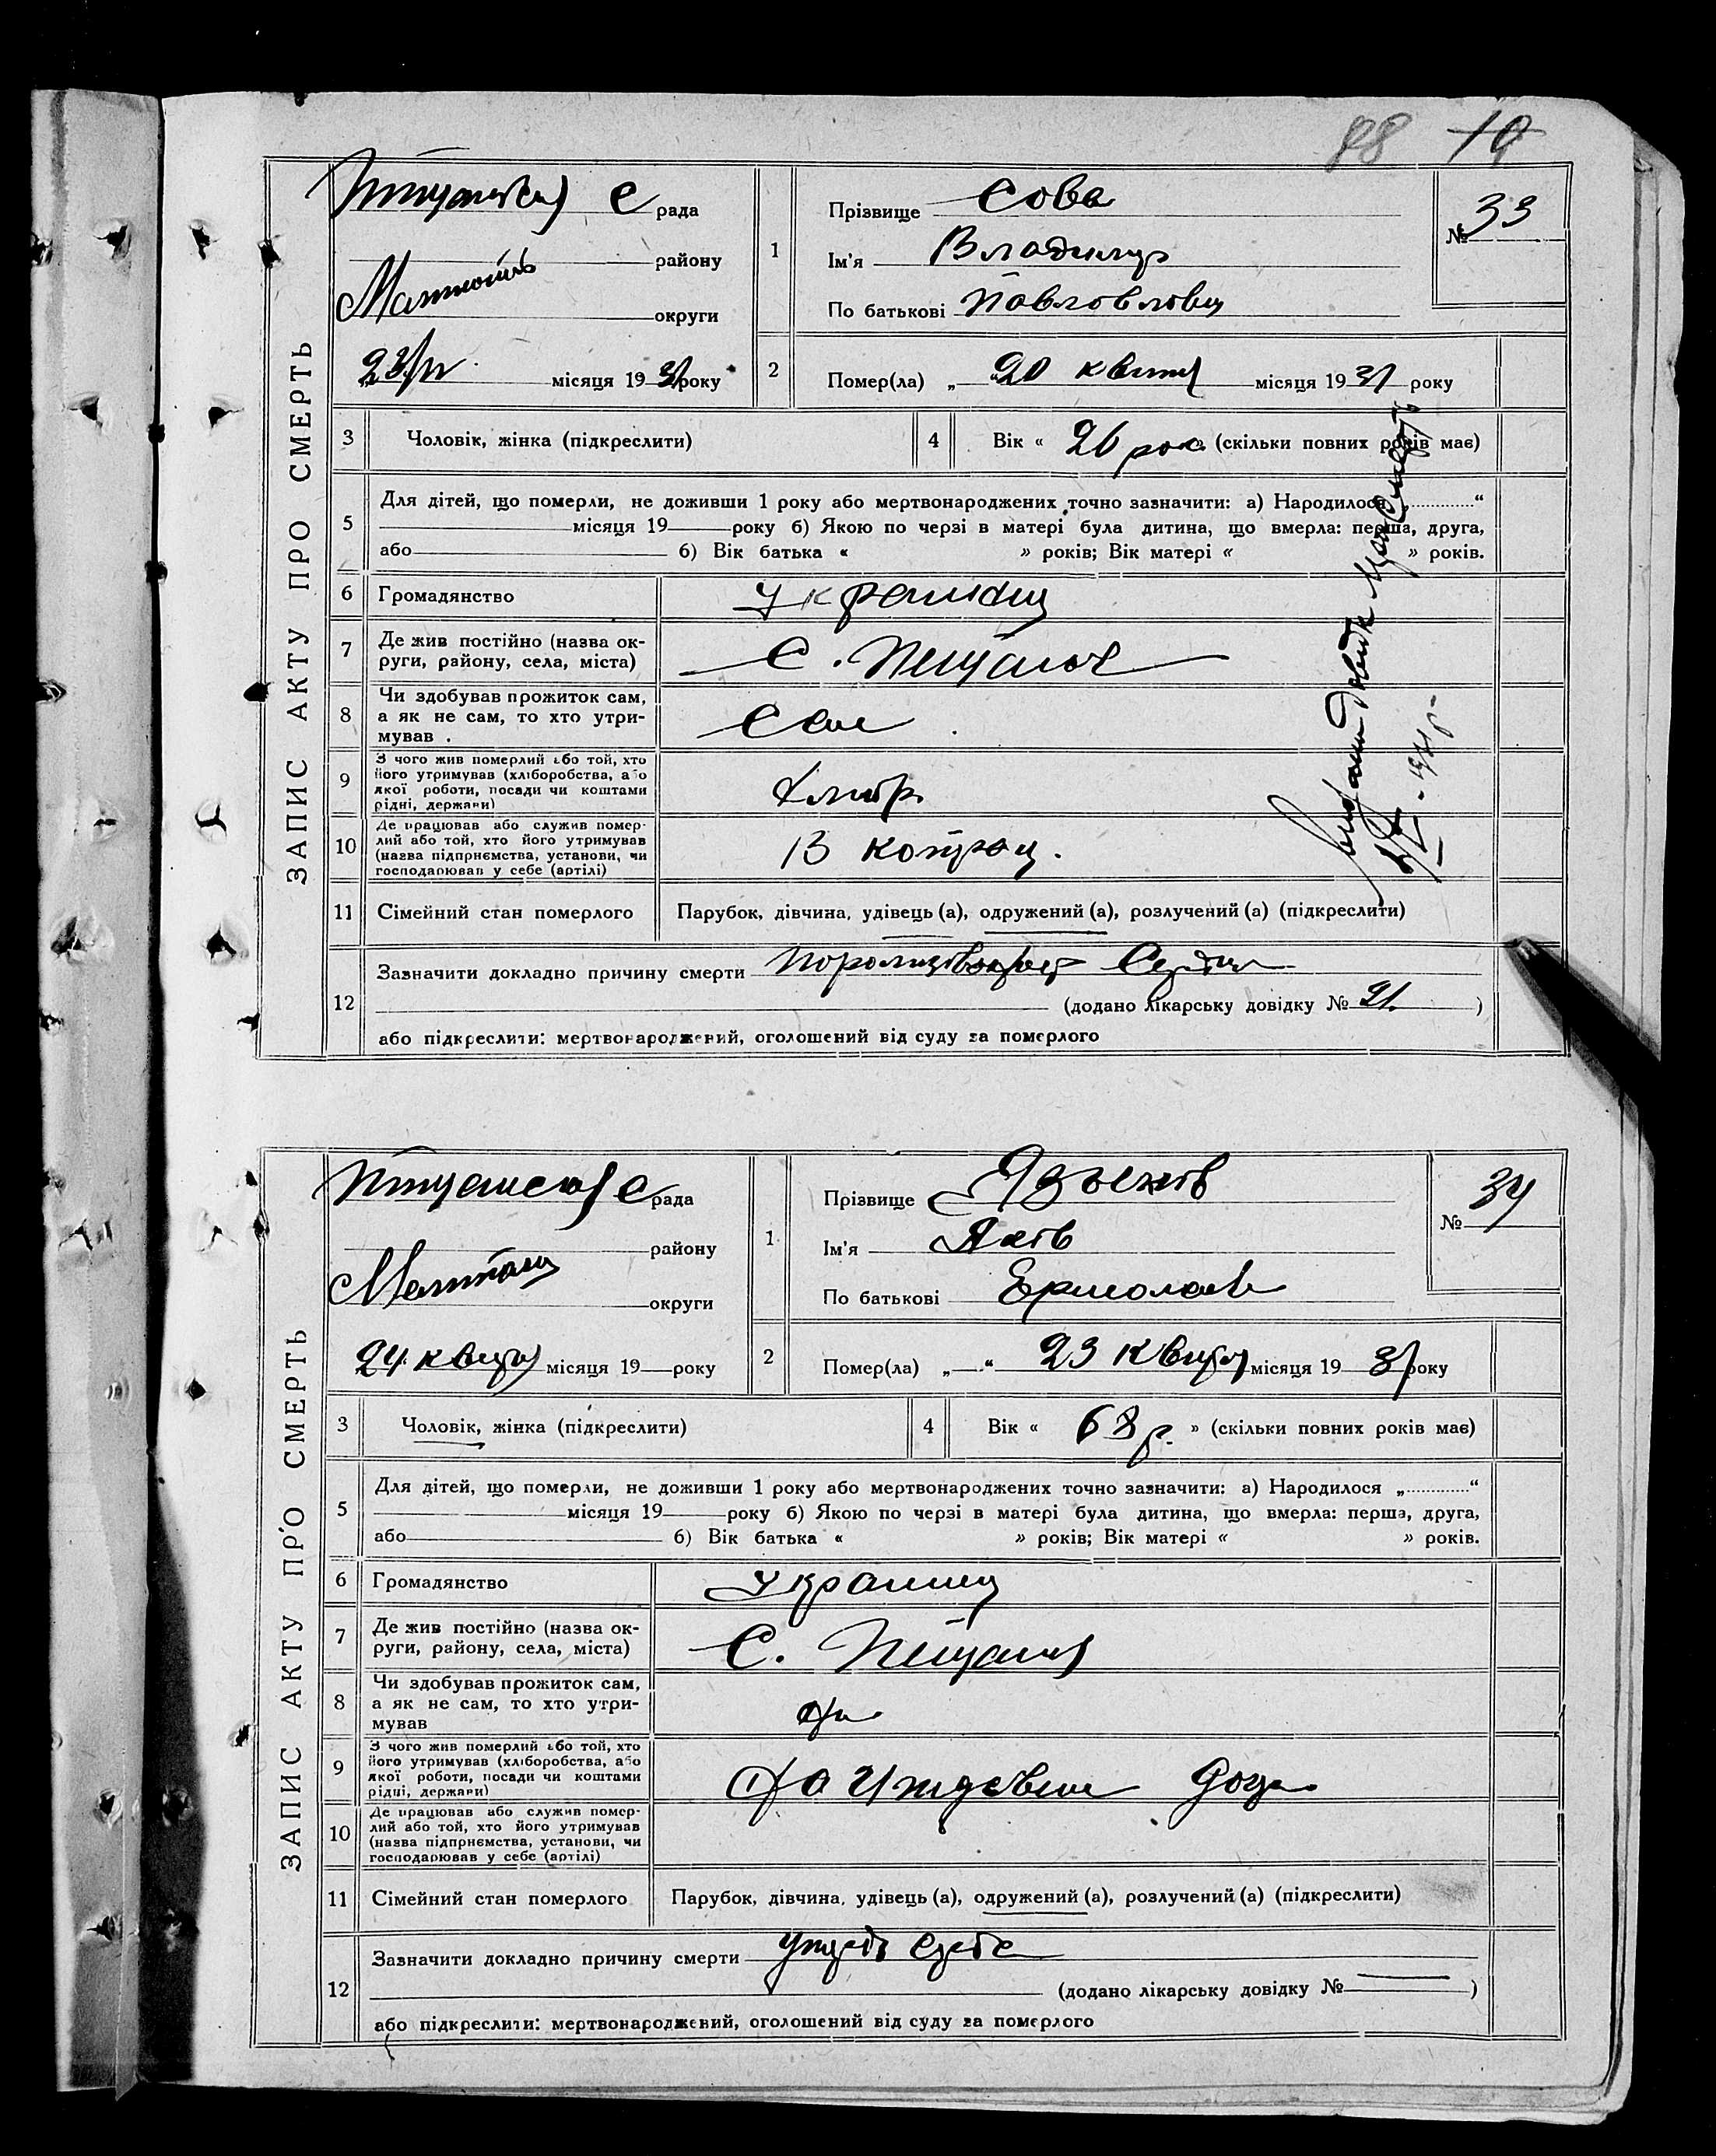 88 19
ЗАПИС АКТУ ПРО СМЕРТЬ
С рада
району
округи
23/IV місяця 1931 року
1
Прізвище Сова
Ім'я Владимир
По батькові Павлович
№ 33
2
Помер(ла) „ 20 квітня місяця 1931 року
3 Чоловік, жінка (підкреслити)
4 Вік « 26 рок (скільки повних років має)
5
Для дітей, що померли, не доживши 1 року або мертвонароджених точно зазначити: а) Народилося „ “
місяця 19 року б) Якою по черзі в матері була дитина, що вмерла: перша, друга,
або б) Вік батька « » років; Вік матері « » років.
6 Громадянство Українець
7 Де жив постійно (назва ок-
руги, району, села, міста)
С.
8 Чи здобував прожиток сам,
а як не сам, то хто утри-
мував
Сам
9 З чого жив померлий або той, хто
його утримував (хліборобства, або
якої роботи, посади чи коштами
рідні, держави)
10 Де працював або служив помер-
лий або той, хто його утримував
(назва підприємства, установи, чи
господарював у себе (артілі)
В
11 Сімейний стан померлого Парубок, дівчина, удівець (а), одружений (а), розлучений (а) (підкреслити)
12
Зазначити докладно причину смерти
(додано лікарську довідку № 21. )
або підкреслити: мертвонароджений, оголошений від суду за померлого
ЗАПИС АКТУ ПРО СМЕРТЬ
С рада
району
округи
24 квітня місяця 19 року
1
Прізвище
Ім'я Яків
По батькові Ермолаев
№ 34
2
Помер(ла) „ “ 23 квітня місяця 1931 року
3 Чоловік, жінка (підкреслити)
4 Вік « 68 р. » (скільки повних років має)
5
Для дітей, що померли, не доживши 1 року або мертвонароджених точно зазначити: а) Народилося „ “
місяця 19 року б) Якою по черзі в матері була дитина, що вмерла: перша, друга,
або б) Вік батька « » років; Вік матері « » років.
6 Громадянство Українець
7 Де жив постійно (назва ок-
руги, району, села, міста)
С.
8 Чи здобував прожиток сам,
а як не сам, то хто утри-
мував
9 З чого жив померлий або той, хто
його утримував (хліборобства, або
якої роботи, посади чи коштами
рідні, держави)
10 Де працював або служив помер-
лий або той, хто його утримував
(назва підприємства, установи, чи
господарював у себе (артілі)
11 Сімейний стан померлого Парубок, дівчина, удівець (а), одружений (а), розлучений (а) (підкреслити)
12
Зазначити докладно причину смерти
(додано лікарську довідку № )
або підкреслити: мертвонароджений, оголошений від суду за померлого